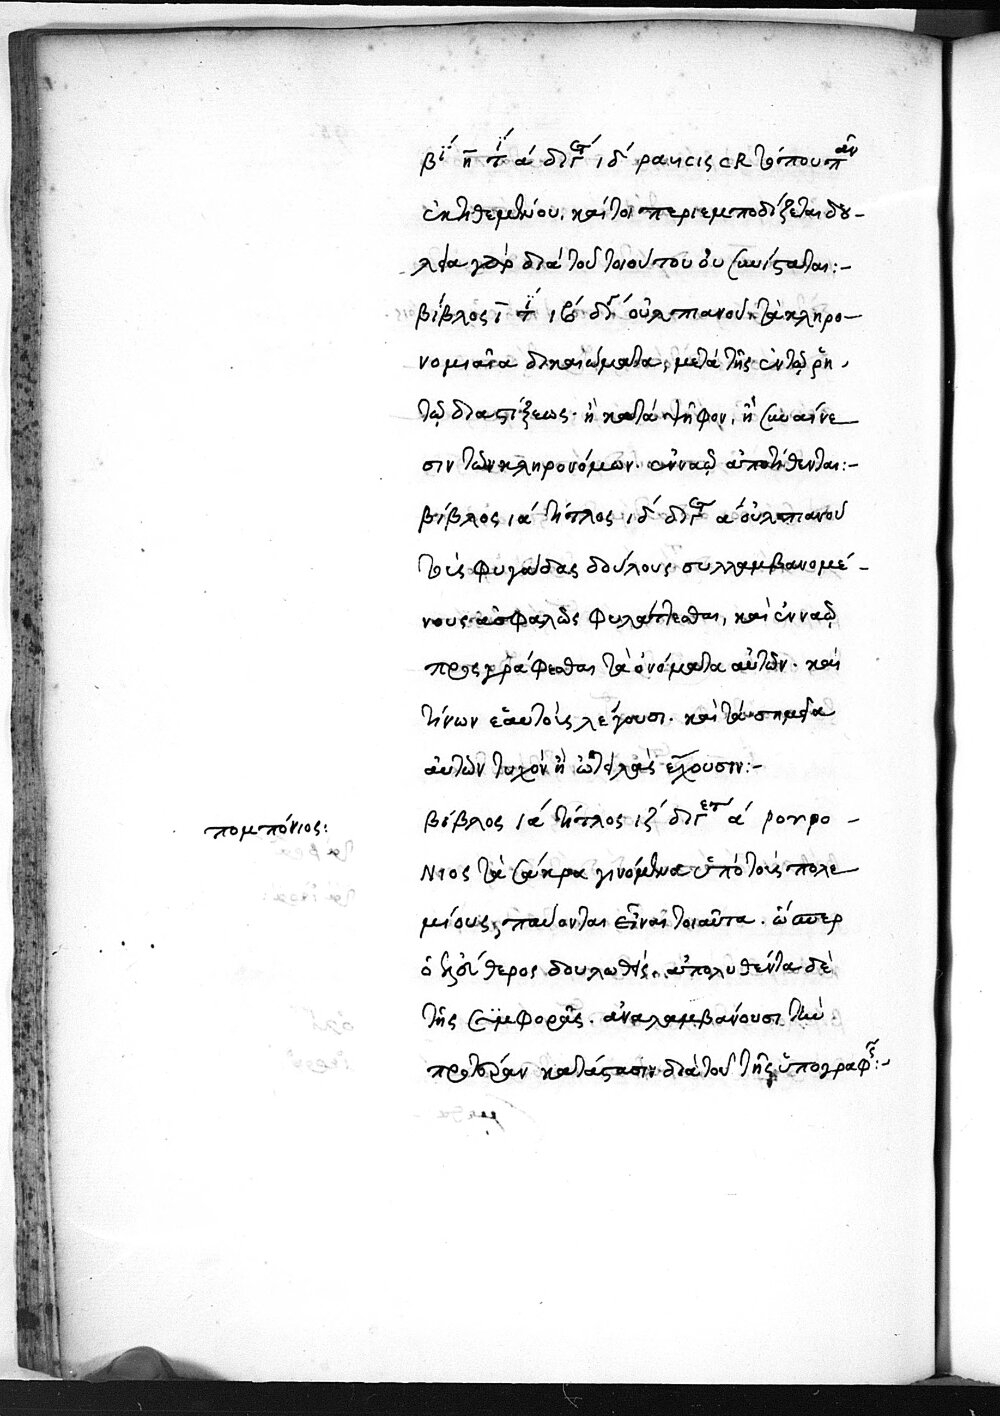 βι η τι ά διγ ιδ ραυcις cR τόπου παν
ἐκτιθεμένου. καίτοι περιεμποδίζεται δου-
λεία γὰρ διὰ τοῦ τοιούτου οὐ συνίσταται:-
βίβλος ι τι ιβ διγ οὐλπιανοῦ. τὰ κληρο-
νομιαῖα δικαιώματα, μετὰ τῆς ἐν τῷ ῥη
τῷ διαπίξεως. ἢ κατὰ ψῆφον, ἢ συναίνε
σιν τῶν κληρονόμων. ἐν ναῷ ἀποτίθενται:-
βίβλος ια τίτλος ιδ διγ α οὐλπιανοῦ
τοὺς φυγάδας δούλους συλλαμβανομέ-
νους ἀσφαλῶς φυλάττεσθαι, καὶ ἐν ναῷ
προςγράφεσθαι τὰ ὀνόματα αὐτῶν. καὶ
τίνων ἑαυτοὺς λέγουσι. καὶ τὰ σημεῖα
αὐτῶν τυχὸν ἢ ὠτειλὰς ἔχουσιν:-
πομπόνιος:
βίβλος ια τίτλος ιζ διγ ά
νιος τὰ σάκρα γινόμενα ὑπὸ τοὺς πολε
μίους, παύονται εἶναι τοιαῦτα. ὥσπερ
ὁ ἐλεύθερος δουλωθείς. ἀπολυθέντα δὲ
τῆς συμφορᾶς. ἀναλαμβάνουσι τὴν
προτέραν κατάστασιν διὰ τοῦ τῆς ὑπογραφῆς:-